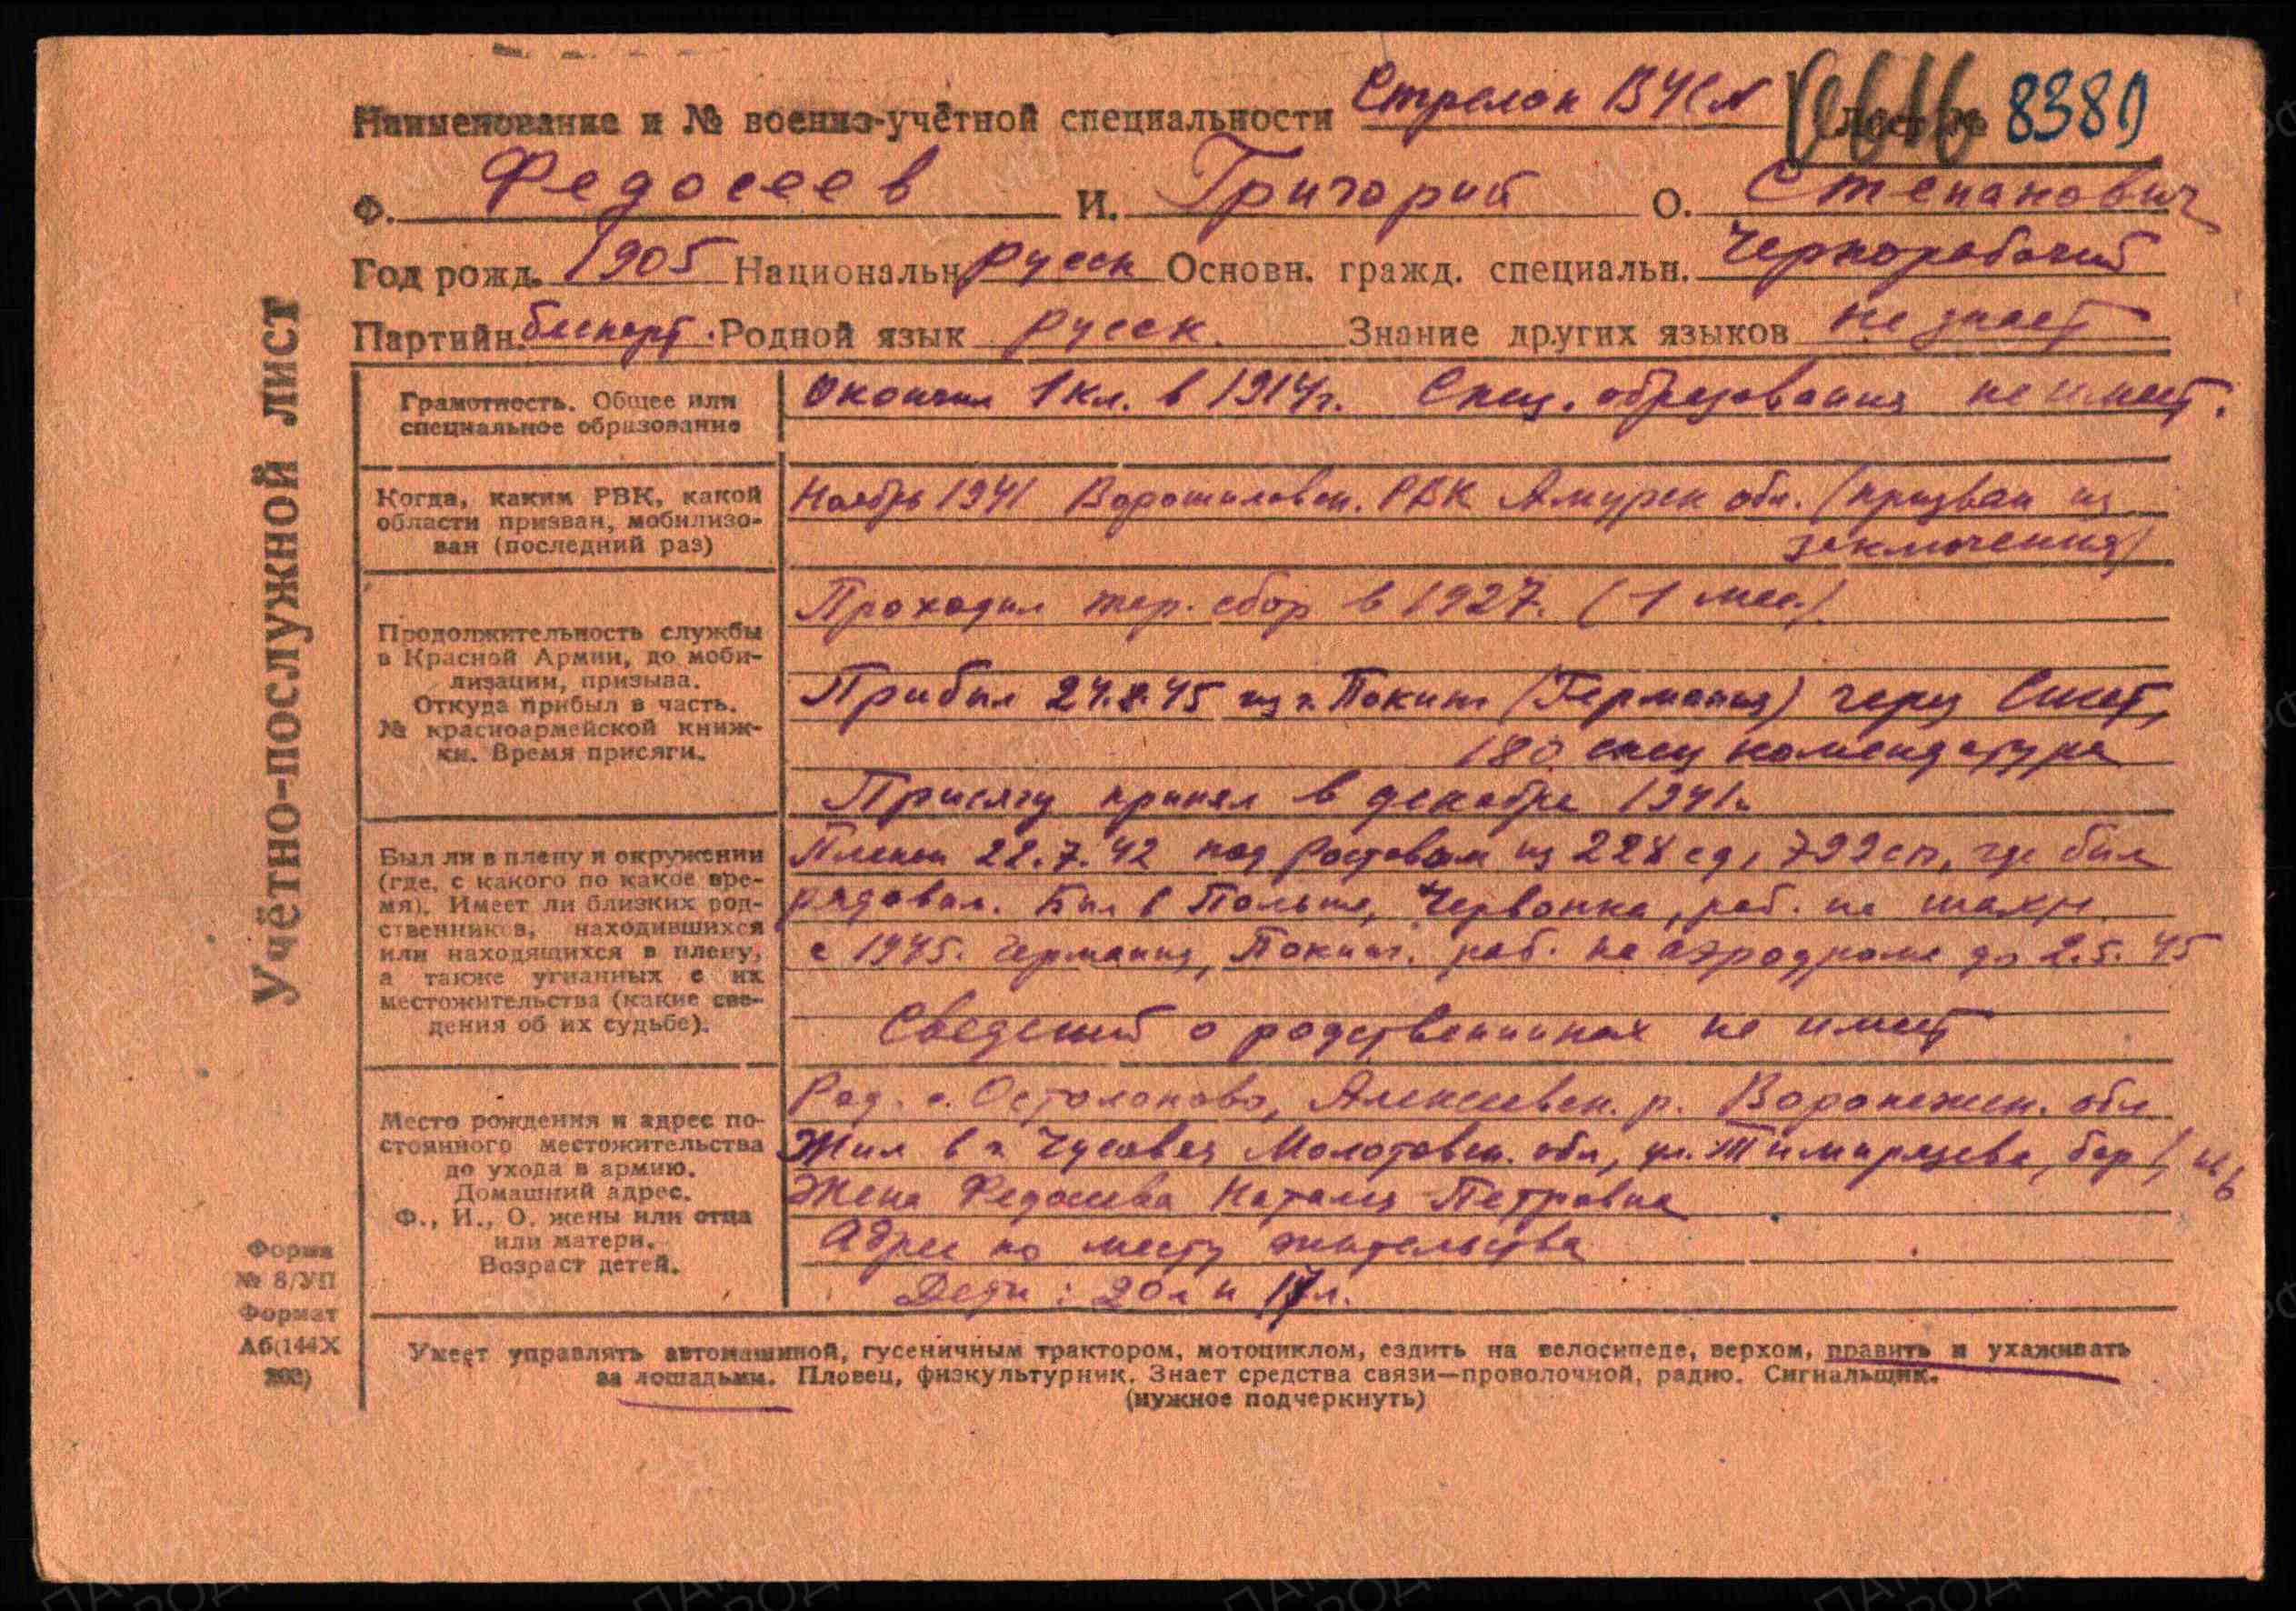 Наименование и № военно-учётной специальности Стрелок ВУС № Лист № 8389
Ф. Федосеев И. Григорий О. Степанович
Год рожд. 1905 Национальн. русск Основн. гражд. специальн. Чернорабочий
Партийн. беспарт. Родной язык русск. Знание других языков не знает
Учётно-послужной лист
Грамотность. Общее или
специальное образование
Окончил 1 кл. в 1914г. Спец. образования не имеет.
Когда, каким РВК, какой
области призван, мобилизо-
ван (последний раз)
Ноябрь 1941 Ворошиловск. РВК Амурск обл. (призван из
заключения)
Продолжительность службы
в Красной Армии, до моби-
лизации, призыва.
Откуда прибыл в часть.
№ красноармейской книж-
ки. Время присяги.
Проходил тер. сбор в 1927. (1 мес.)
Прибыл 24.8.45 из г. Покинг (Германия) через
180 спец комендатура
Присягу принял в декабре 1941г.
Был ли в плену и окружении
(где, с какого по какое вре-
мя). Имеет ли близких род-
ственников, находившихся
или находящихся в плену,
а также угнанных с их
местожительства (какие све-
дения об их судьбе).
Пленен 22.7.42 под Ростовом из 228 сд, 799 сп, где был
рядовым. Был в Польше, Червонка, раб. на шахте
с 1945. Германия, Покинг. раб. на аэродроме до 2.5.45
Сведений о родственниках не имеет
Место рождения и адрес по-
стоянного местожительства
до ухода в армию.
Домашний адрес.
Ф., И., О. жены или отца
или матери.
Возраст детей.
Род. с. Алексеевск. р. Воронежск. обл
Жил в г. Чусовая Молотовск. обл, ул. Тимирязева, бар 1, кв 6
Жена Федосеева Наталия Петровна
Адрес по месту жительства
Дети: 20 л и 17 л.
Форма
№ 8/УП
Формат
А6(144Х
202)
Умеет управлять автомашиной, гусеничным трактором, мотоциклом, ездить на велосипеде, верхом, править и ухаживать
за лошадьми. Пловец, физкультурник. Знает средства связи—проволочной, радио. Сигнальщик.
(нужное подчеркнуть)